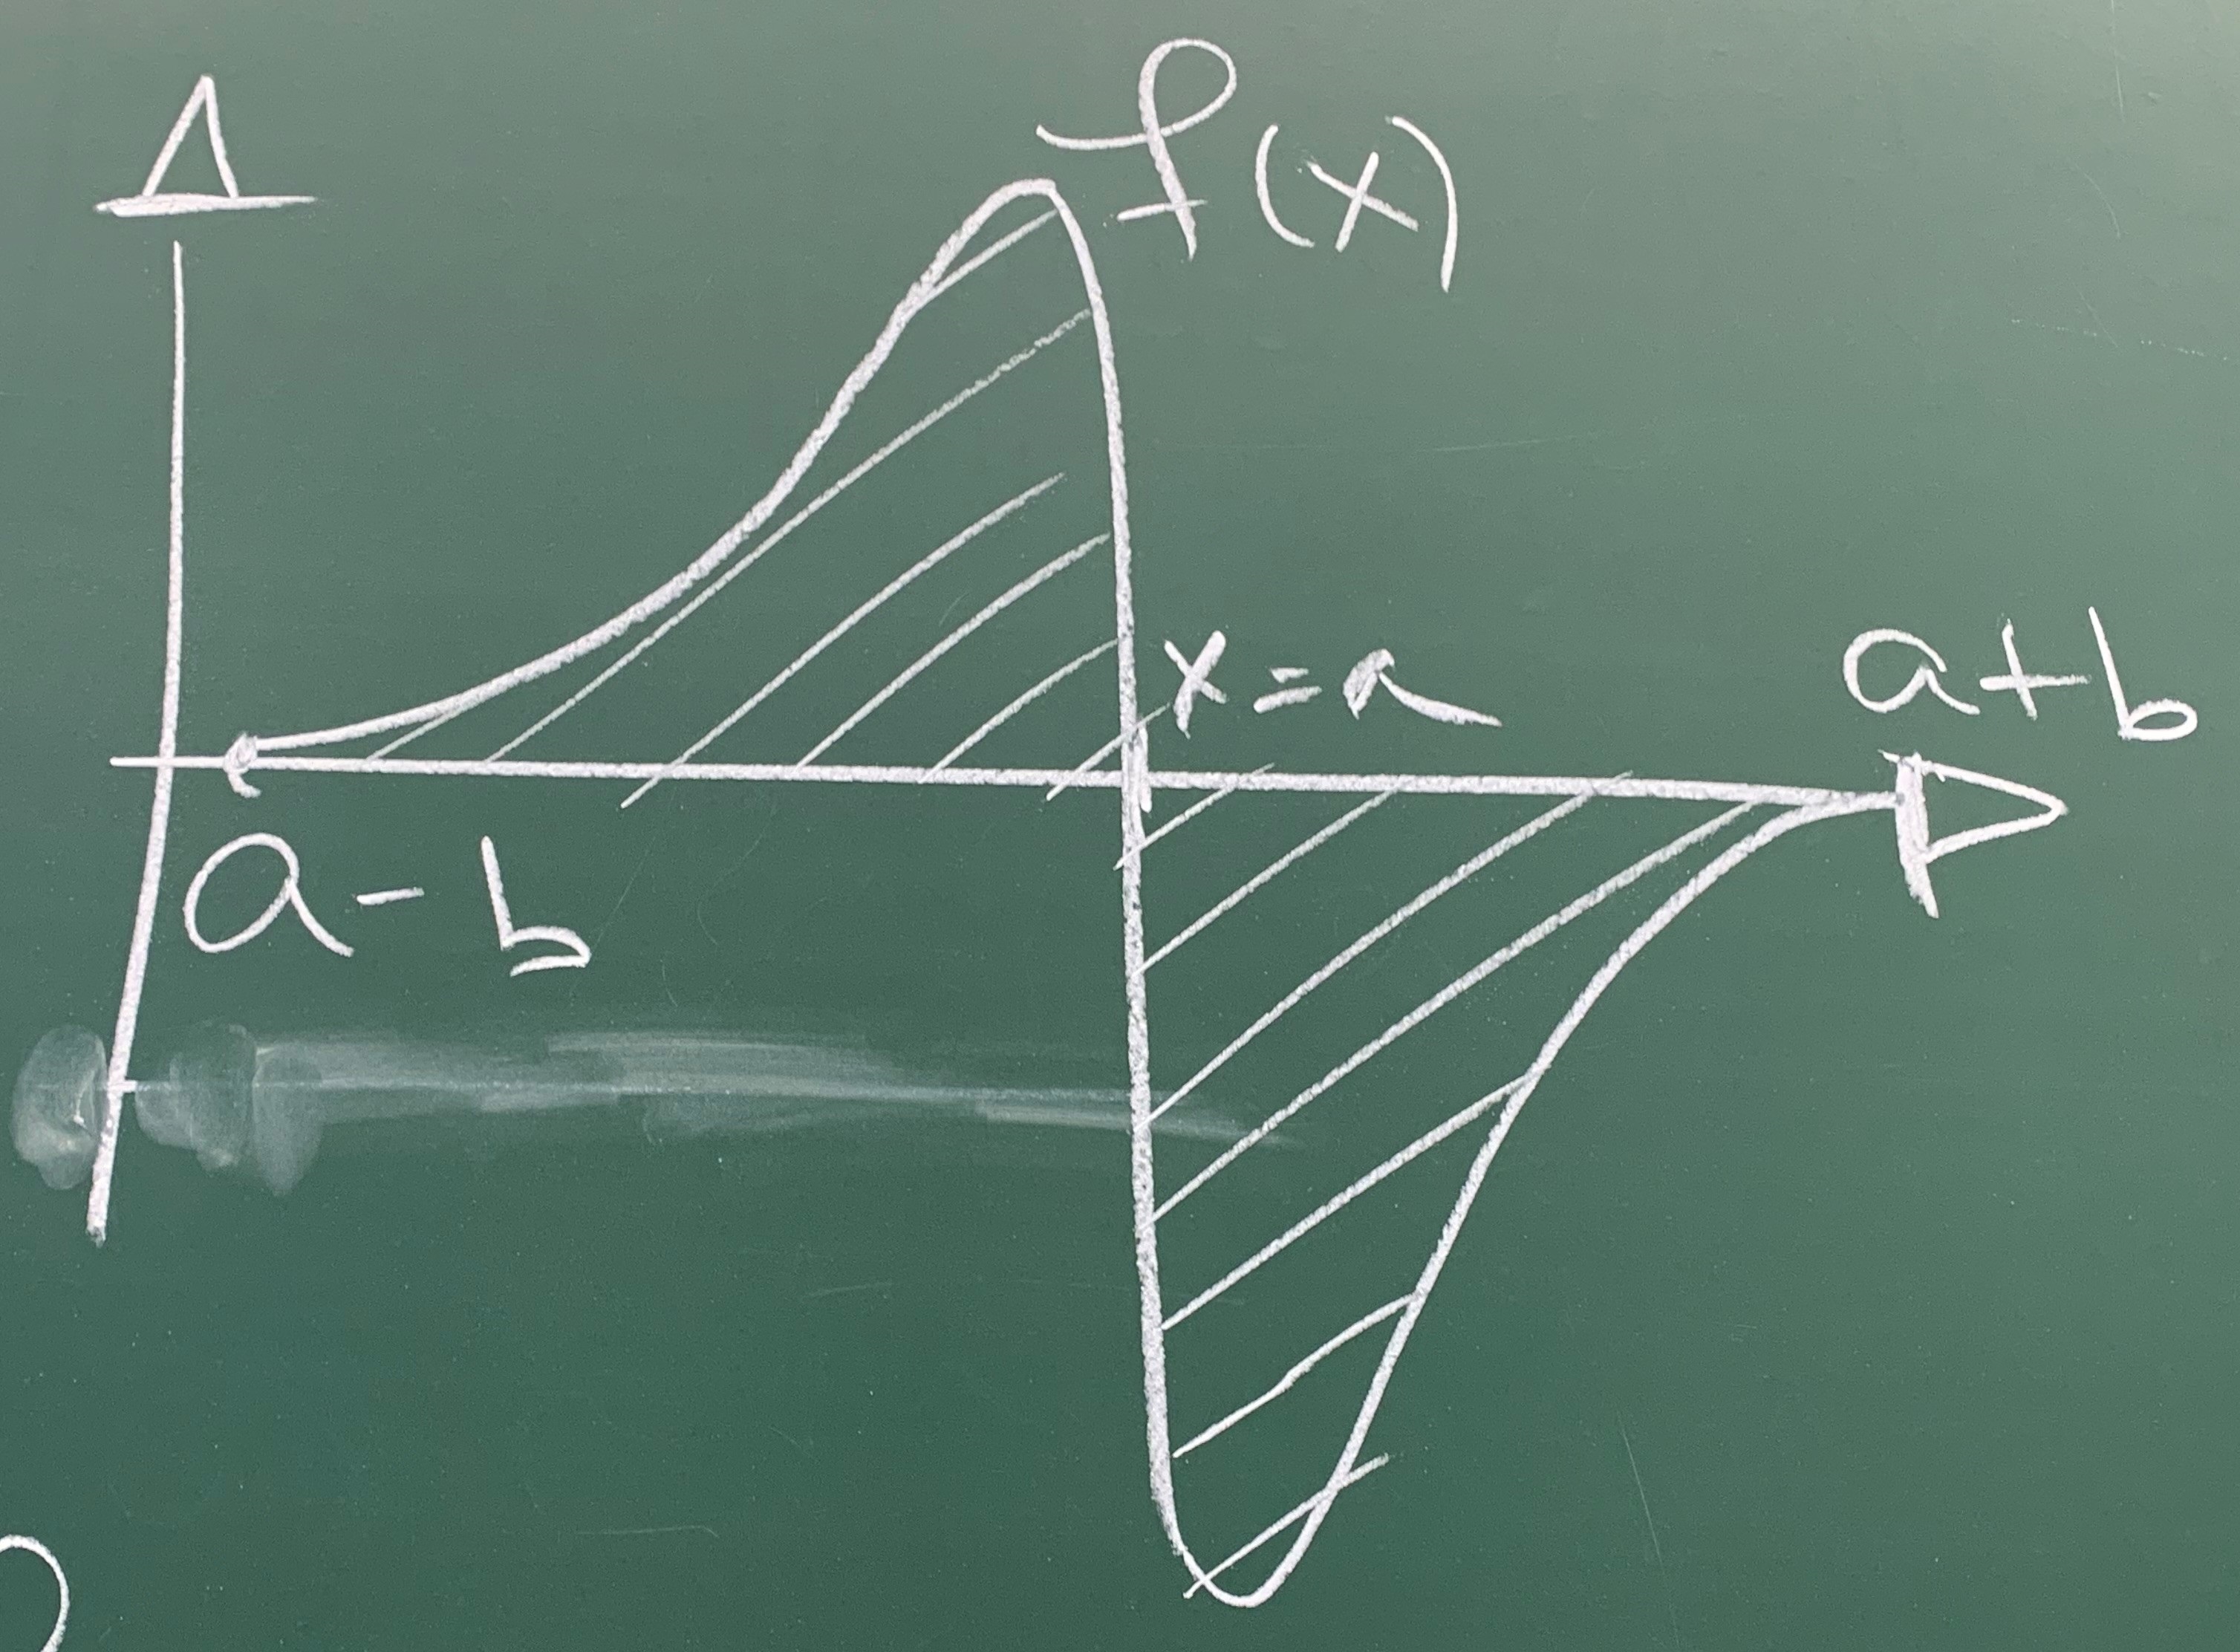 f(x)
x=a
a+b
a-b